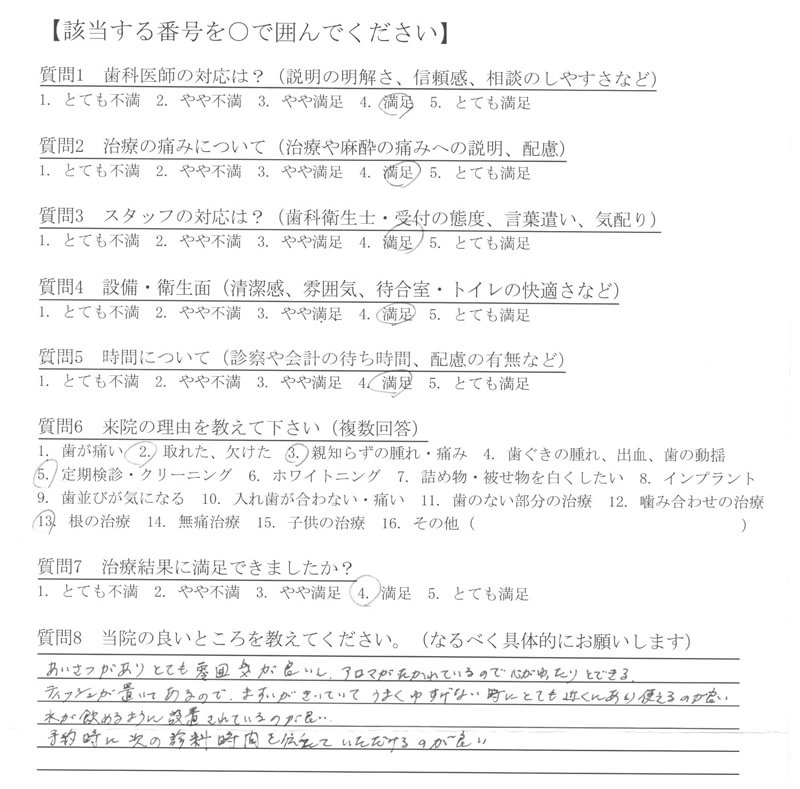 【該当する番号を○で囲んでください】
質問1　歯科医師の対応は？（説明の明解さ、信頼感、相談のしやすさなど）
1. とても不満　2. やや不満　3. やや満足　4. 満足　5. とても満足
質問2　治療の痛みについて（治療や麻酔の痛みへの説明、配慮）
1. とても不満　2. やや不満　3. やや満足　4. 満足　5. とても満足
質問3　スタッフの対応は？（歯科衛生士・受付の態度、言葉遣い、気配り）
1. とても不満　2. やや不満　3. やや満足　4. 満足　5. とても満足
質問4　設備・衛生面（清潔感、雰囲気、待合室・トイレの快適さなど）
1. とても不満　2. やや不満　3. やや満足　4. 満足　5. とても満足
質問5　時間について（診察や会計の待ち時間、配慮の有無など）
1. とても不満　2. やや不満　3. やや満足　4. 満足　5. とても満足
質問6　来院の理由を教えて下さい（複数回答）
1. 歯が痛い　2. 取れた、欠けた　3. 親知らずの腫れ・痛み　4. 歯ぐきの腫れ、出血、歯の動揺
5. 定期検診・クリーニング　6. ホワイトニング　7. 詰め物・被せ物を白くしたい　8. インプラント
9. 歯並びが気になる　10. 入れ歯が合わない・痛い　11. 歯のない部分の治療　12. 噛み合わせの治療
13. 根の治療　14. 無痛治療　15. 子供の治療　16. その他（　　　）
質問7　治療結果に満足できましたか？
1. とても不満　2. やや不満　3. やや満足　4. 満足　5. とても満足
質問8　当院の良いところを教えてください。（なるべく具体的にお願いします）
あいさつがありとても雰囲気が良いし、アロマがたかれているので心がゆったりとできる。
ティッシュが置いてあるので、ますいがきいていてうまくゆすげない時にとても近くにあり使えるのが良い
水が飲めるように設置されているのが良い。
予約時に次の診料時間を伝えていただけるのが良い